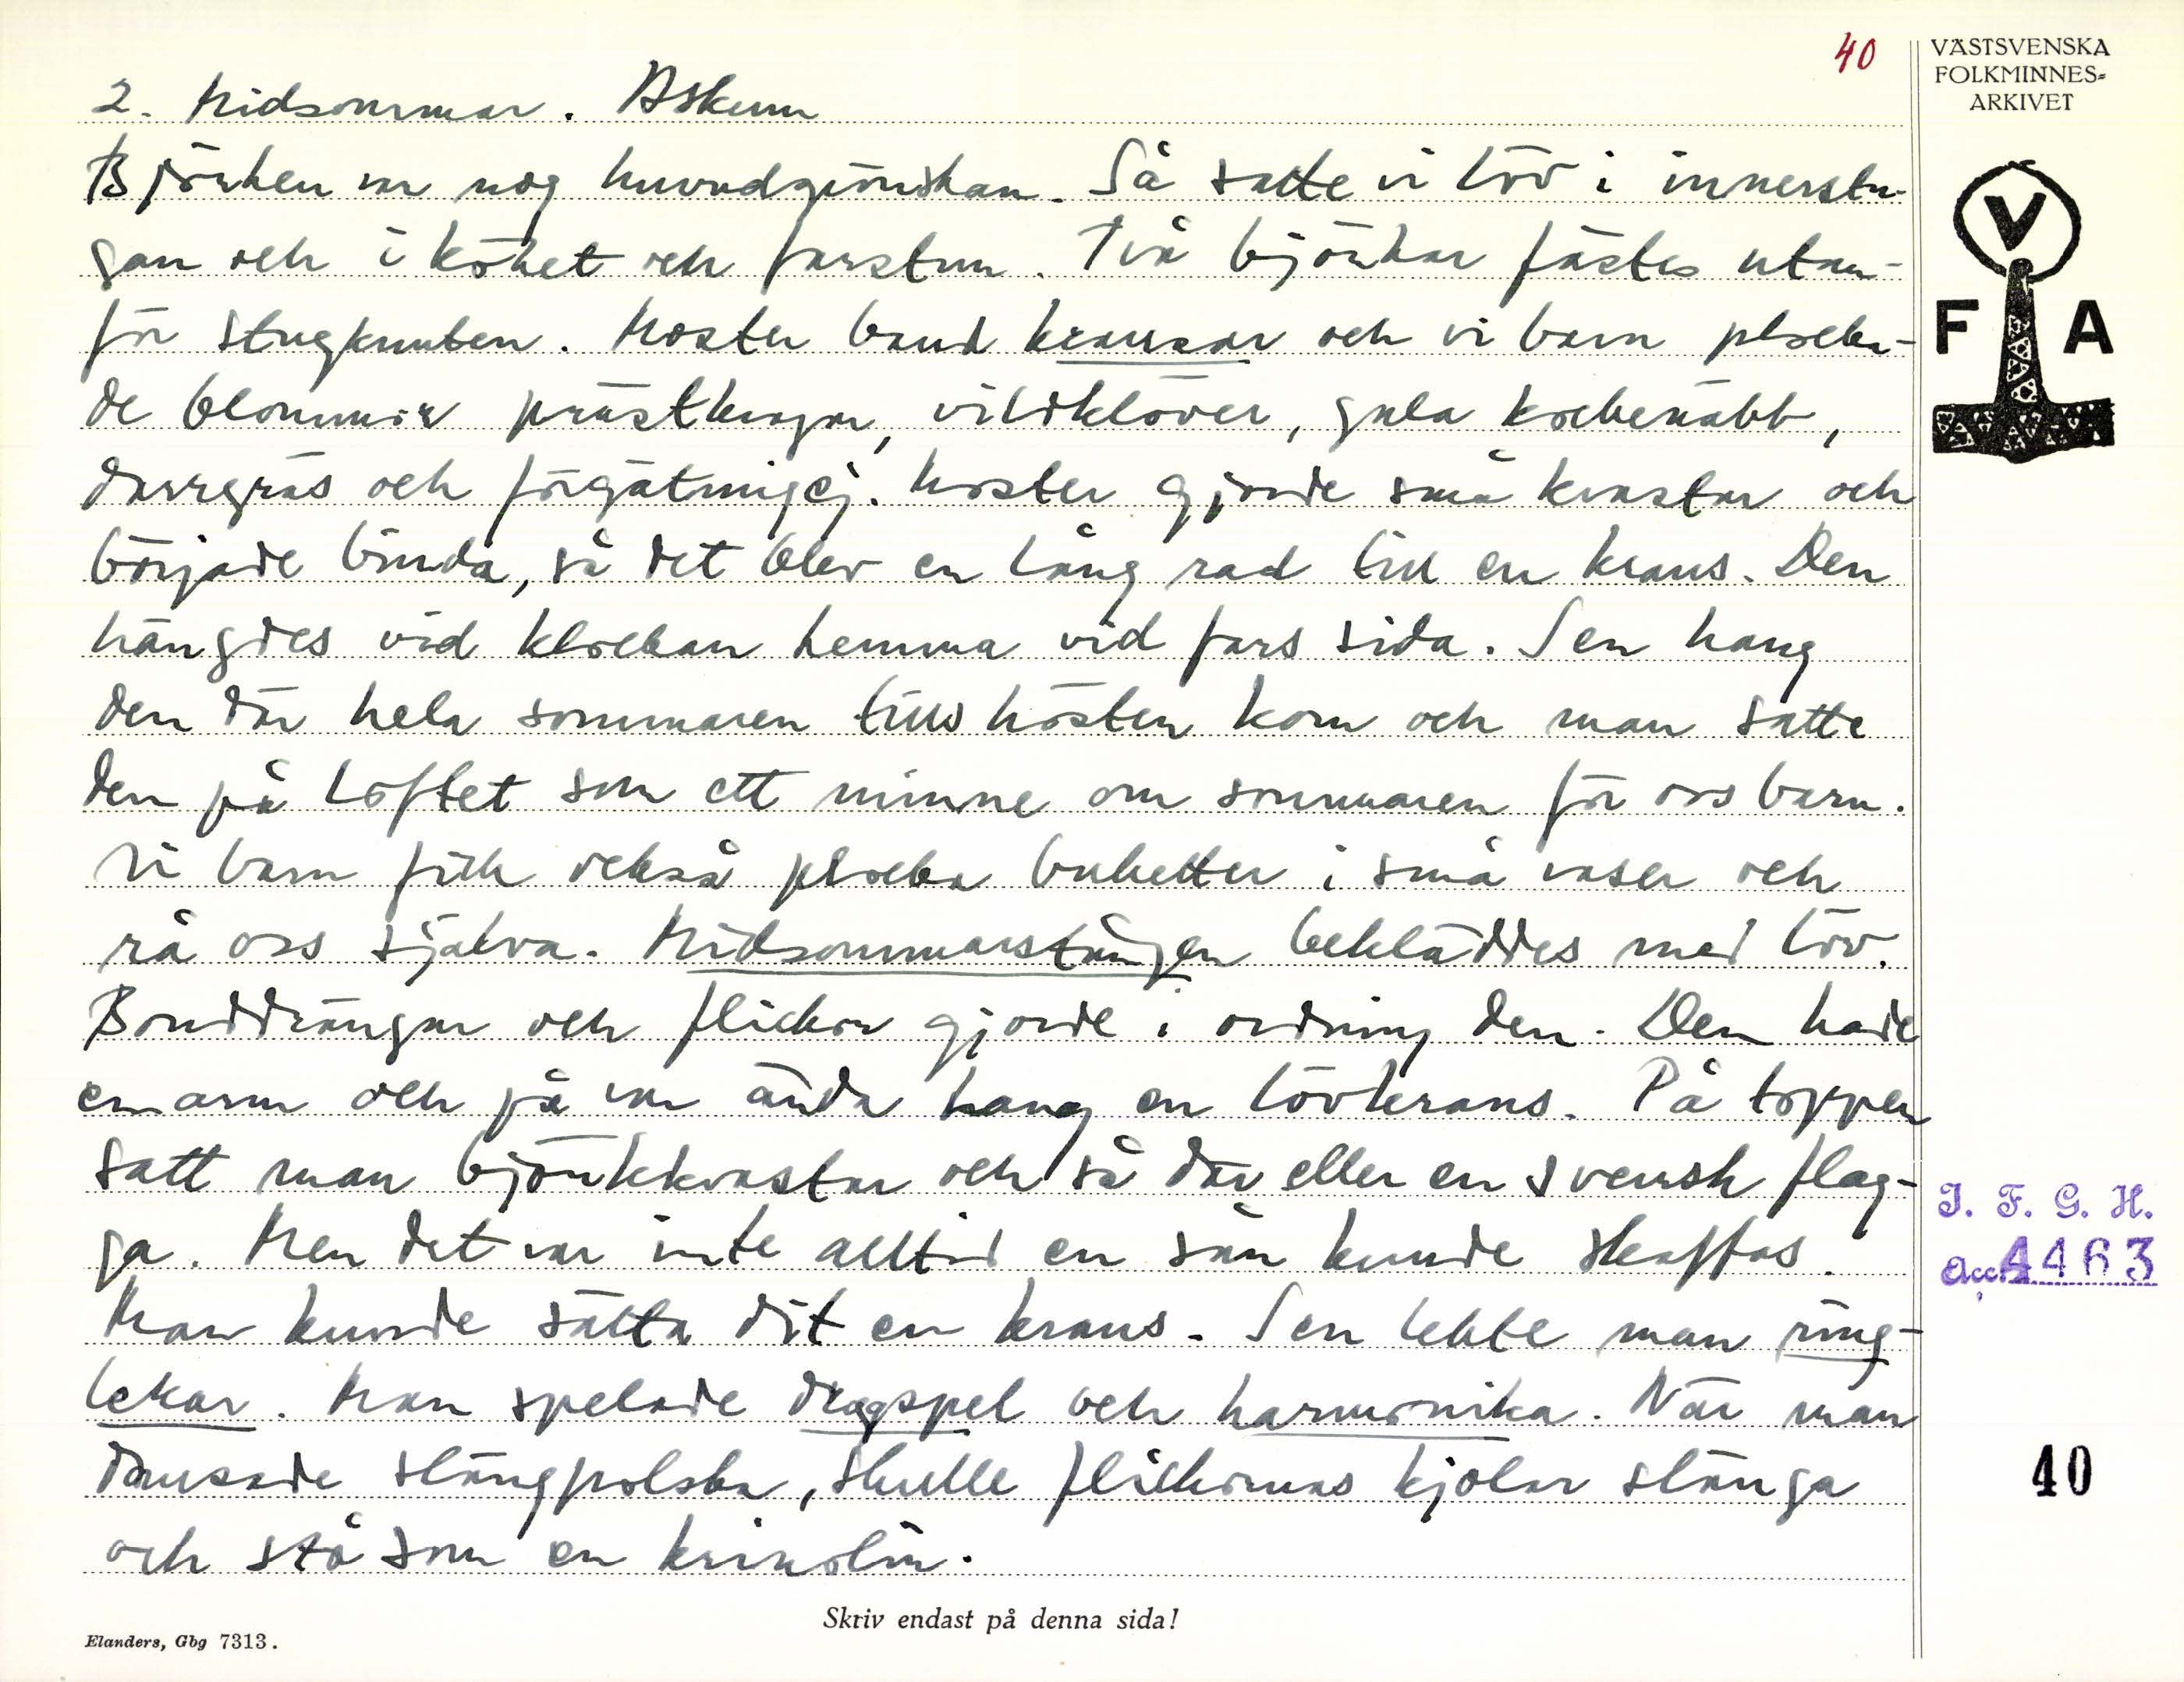 40
VÄSTSVENSKA
FOLKMINNES-
ARKIVET
2. Midsommar. Askum
Björken var nog huvudgrönskan. Så satte vi löv i innerstu-
gan och i köket och farstun. Två björkar fästes utan-
för stugknuten. Moster band kransar och vi barn plocka-
de blommor prästkragar, vildklöver, gula kockenäbb,
darrgräs och förgätmigej. Moster gjorde små kvastar och
började binda, så det blev en lång rad till en krans. Den
hängdes vid klockan hemma vid fars sida. Sen hang
den där hela sommaren tills hösten kom och man satte
den på loftet som ett minne om sommaren för oss barn.
Vi barn fick också plocka buketter i små vaser och
rå oss själva. Midsommarstången bekläddes med löv.
Bonddrängar och flickor gjorde i ordning den. Den hade
en arm och på var ända hang en lövkrans. På toppen
satt man björkkvastar och så där eller en svensk flag-
ga. Men det var inte alltid en sån kunde skaffas.
Man kunde sätta dit en krans. Sen lekte man ring-
lekar. Man spelade dragspel och harmonika. När man
dansade slängpolska, skulle flickornas kjolar slänga
och stå som en krinolin.
V
F A
I. F. G. H.
Acc. 4463
40
Skriv endast på denna sida!
Elanders, Gbg 7313.